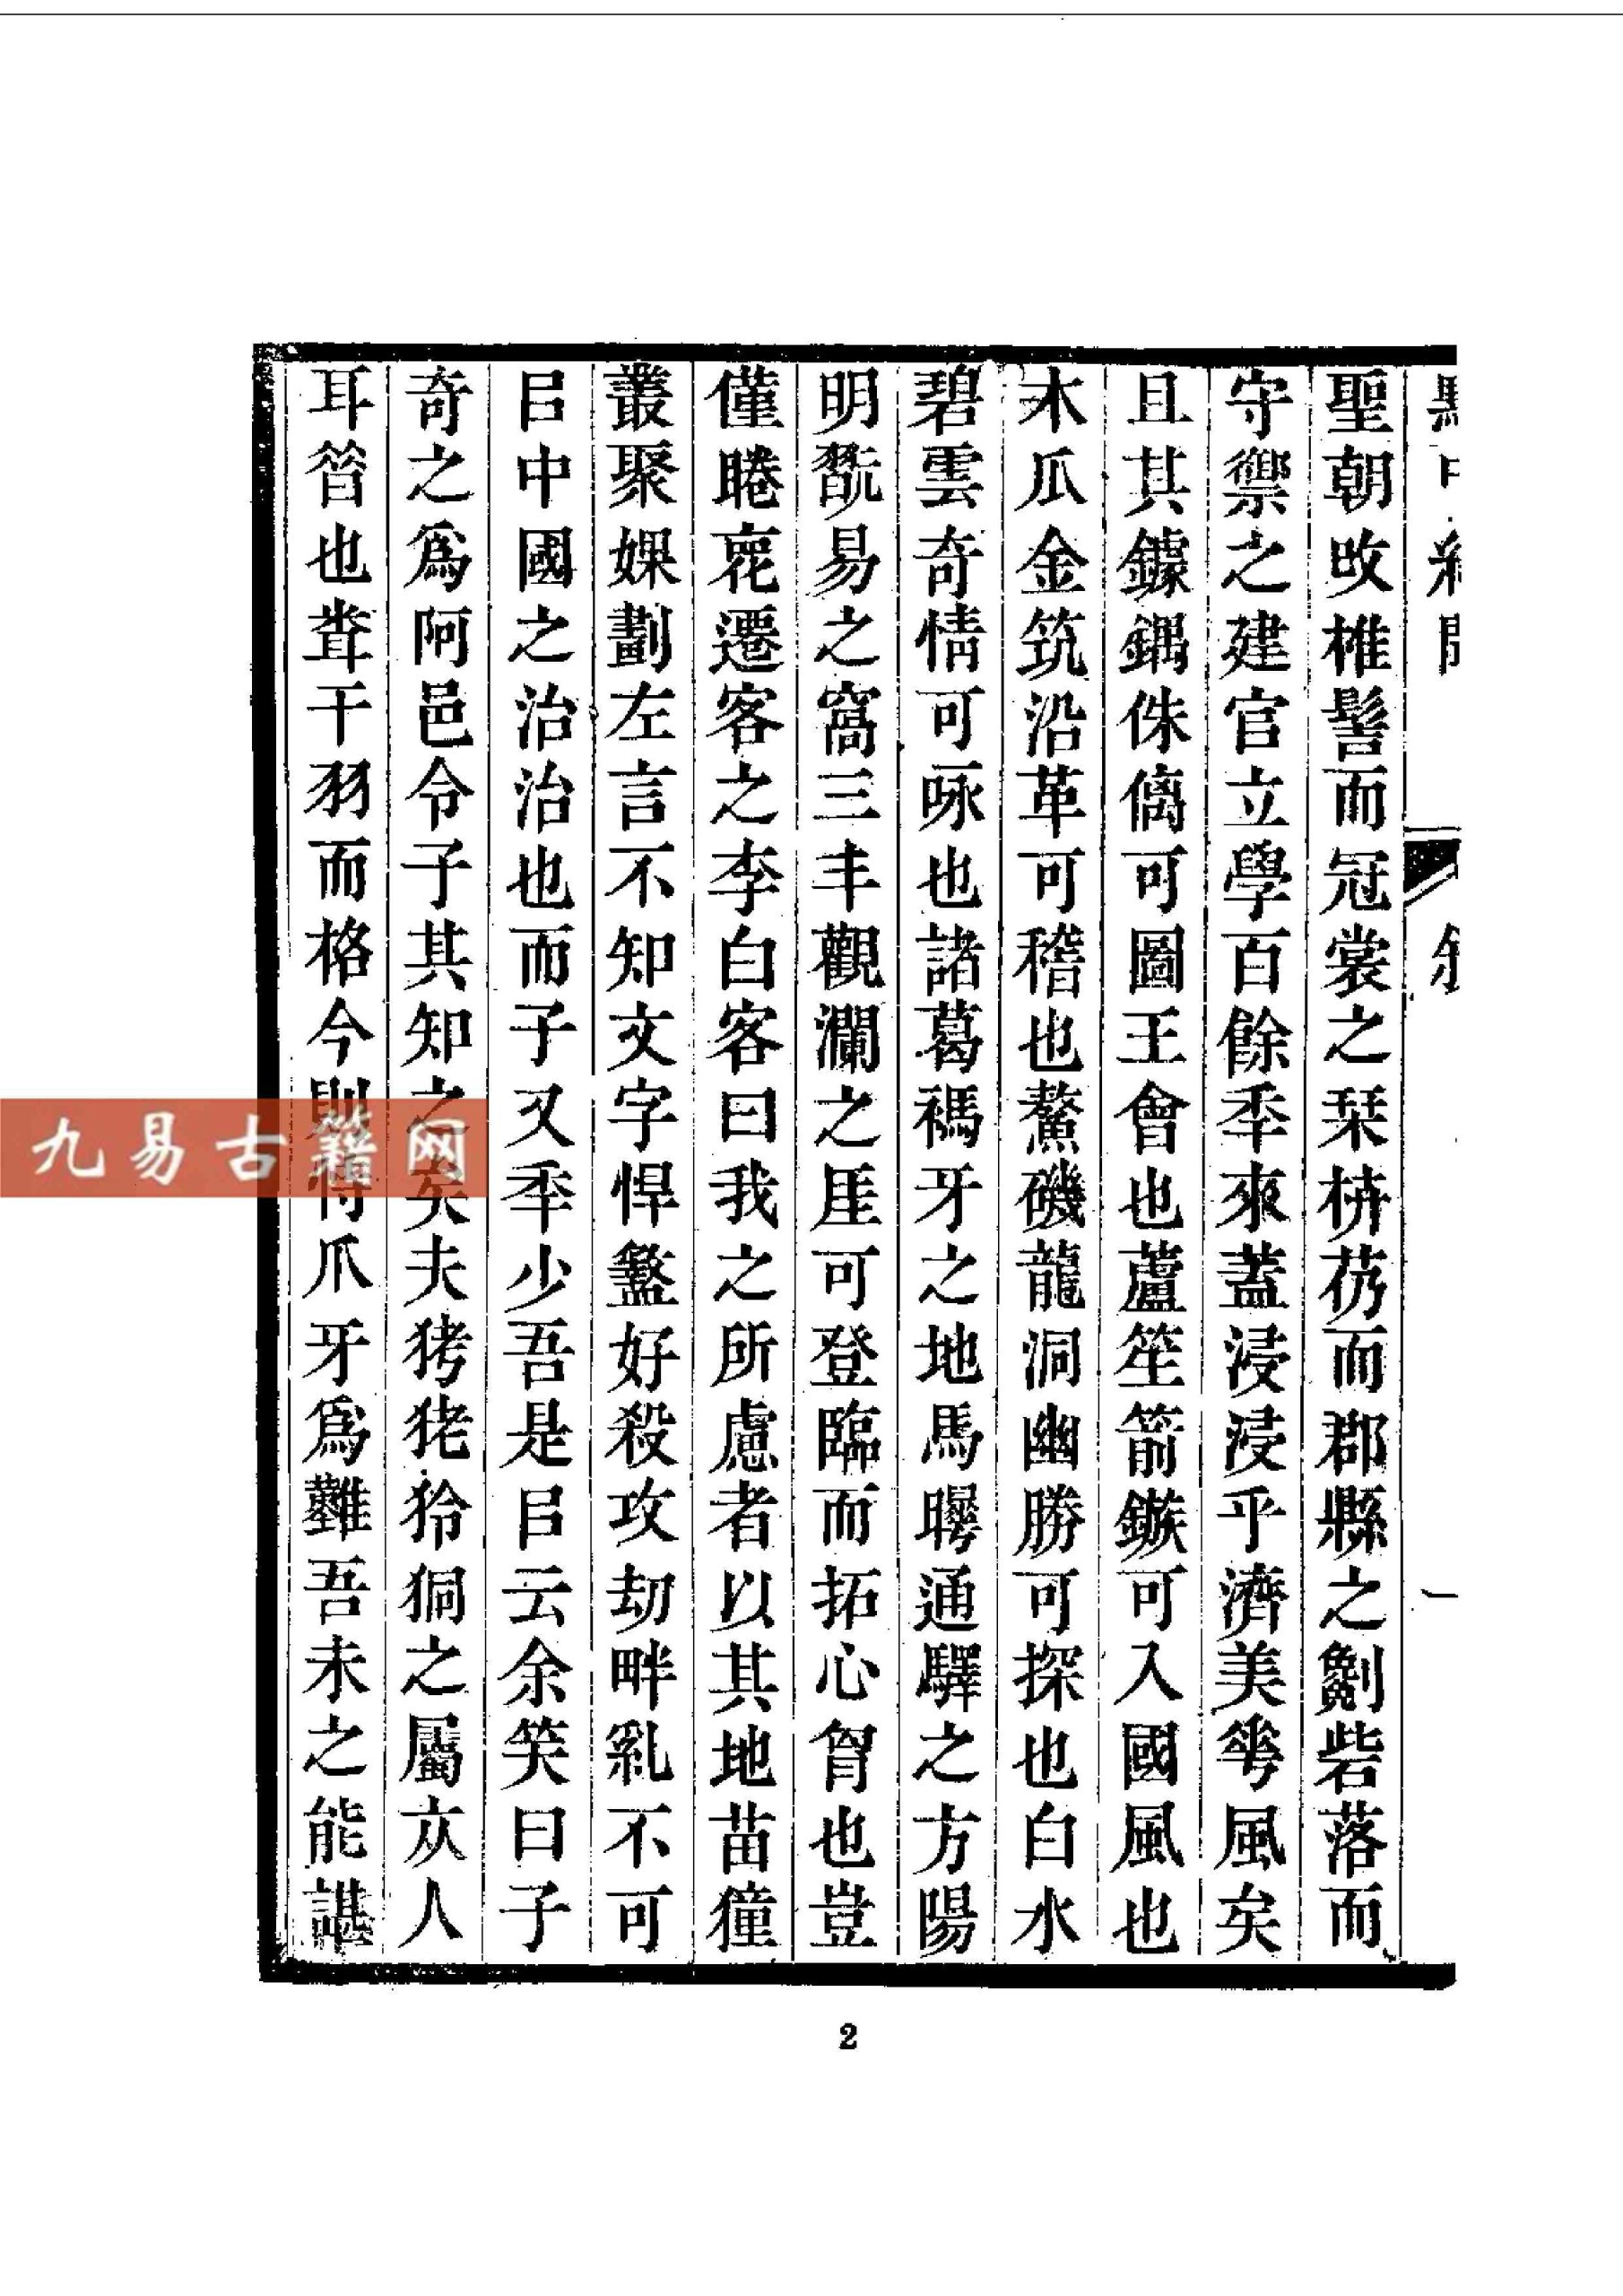 聖朝攺椎髻而冠裳之栞栟芿而郡縣之劖砦落而
守禦之建官立學百餘秊來蓋浸浸乎濟美華風矣
且其鐻鍝侏儷可圖王會也蘆笙箭鏃可入國風也
木瓜金筑沿革可稽也鰲磯龍洞幽勝可探也白水
碧雲奇情可咏也諸葛禡牙之地馬曄通驛之方陽
明翫易之窩三丰觀瀾之厓可登臨而拓心胷也豈
僅睠褱遷客之李白客曰我之所慮者以其地苗獞
叢聚婐劃左言不知文字悍盭好殺攻刼畔亂不可
㠯中國之治治也而子又秊少吾是㠯云余笑曰子
奇之爲阿邑令子其知之矣夫狫狑狪之屬亦人
耳昔也聾干羽而格今則恃爪牙爲難吾未之能諶
一
九易古籍网
2